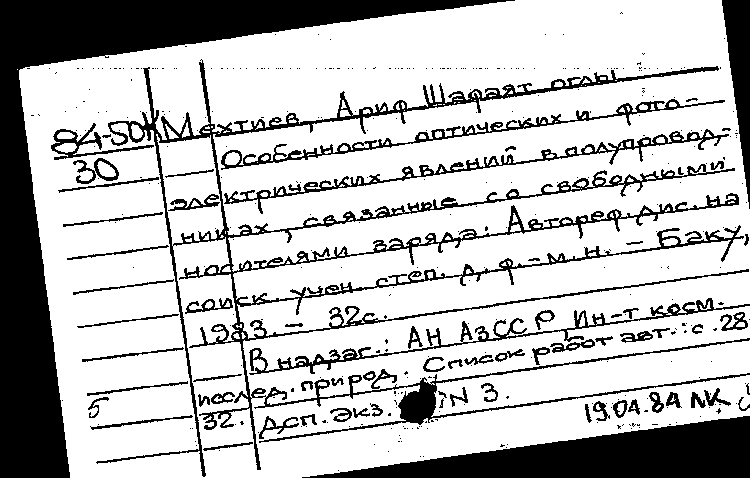 84-50К Мехтиев, Ариф Шафаят оглы
30 Особенности оптических и фото-
электрических явлений в полупровод-
никах, связанные со свободными
носителями заряда: Автореф. дис. на
соиск. учен. степ. д. ф.-м. н. - Баку,
1983. - 32с.
В надзаг.: АН АзССР, Ин-т косм.
исслед. природ. Список работ авт.: с. 28-
5 32. Деп. экз. N 3.
19.04.84 ЛК